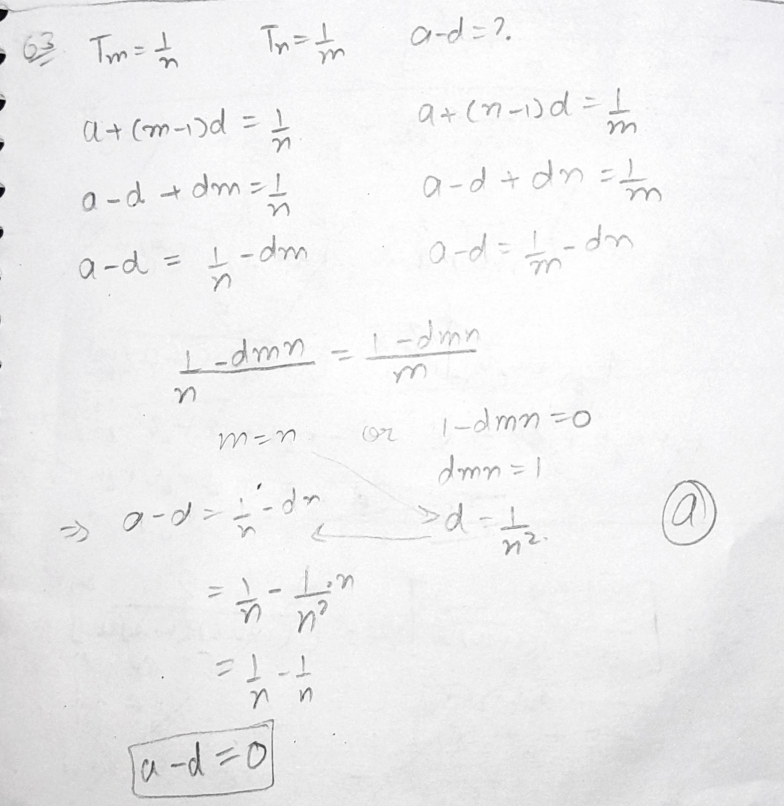 63 Tm = 1/n Tn = 1/m a-d = ?.
a+(m-1)d = 1/n a+(n-1)d = 1/m
a-d + dm = 1/n a-d + dn = 1/m
a-d = 1/n - dm a-d = 1/m - dn
(1-dmn)/n = (1-dmn)/m
m=n or 1-dmn=0
dmn = 1
⇒ a-d = 1/n - dn d = 1/n². (a)
= 1/n - 1/n² · n
= 1/n - 1/n
a-d = 0